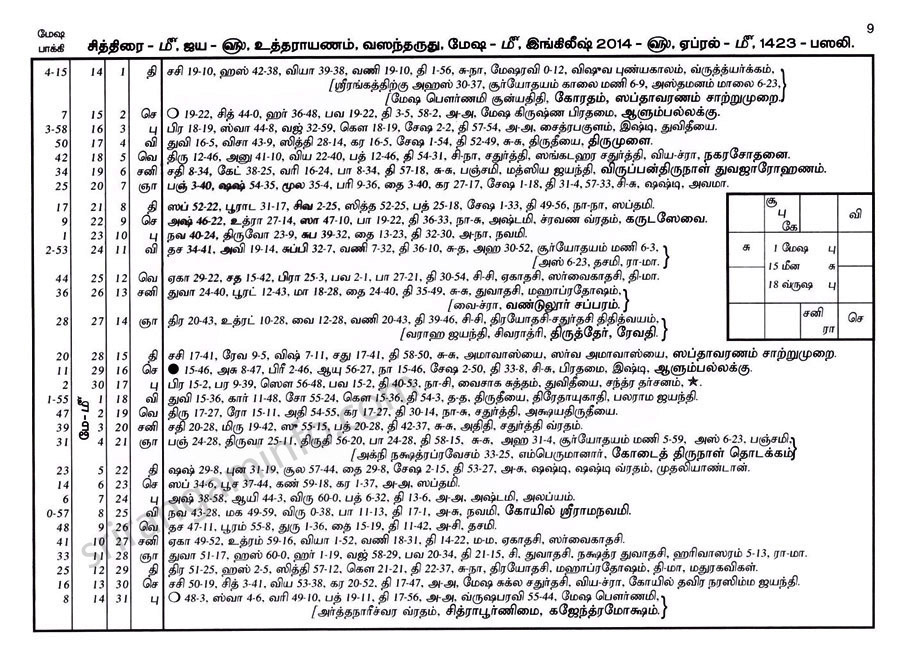 9
மேஷ
பாக்கி
சித்திரை - மீ, ஜய - ௵, உத்தராயணம், வஸந்தருது, மேஷ - மீ, இங்கிலீஷ் 2014 - ௵, ஏப்ரல் - மீ, 1423 - பஸலி.
4-15 14 1 தி சசி 19-10, ஹஸ் 42-38, வியா 39-38, வணி 19-10, தி 1-56, சு-நா, மேஷரவி 0-12, விஷுவ புண்யகாலம், வ்ருத்யர்க்கம்,
[ஸ்ரீரங்கத்திற்கு அஹஸ் 30-37, சூர்யோதயம் காலை மணி 6-9, அஸ்தமனம் மாலை 6-23,
[மேஷ பௌர்ணமி சூன்யதிதி, கோரதம், ஸப்தாவரணம் சாற்றுமுறை.
7 15 2 செ ❍ 19-22, சித் 44-0, ஹர் 36-48, பவ 19-22, தி 3-5, 58-2, அ-அ, மேஷ கிருஷ்ண பிரதமை, ஆளும்பல்லக்கு.
3-58 16 3 பு பிர 18-19, ஸ்வா 44-8, வஜ் 32-59, கௌ 18-19, சேஷ 2-2, தி 57-54, அ-அ, சைத்ரபகுளம், இஷ்டி, துவிதீயை.
50 17 4 வி துவி 16-5, விசா 43-9, ஸித்தி 28-14, கர 16-5, சேஷ 1-54, தி 52-49, சு-சு, திருதீயை, திருமுளை.
42 18 5 வெ திரு 12-46, அனு 41-10, விய 22-40, பத் 12-46, தி 54-31, சி-நா, சதுர்த்தி, ஸங்கடஹர சதுர்த்தி, விய-ச்ரா, நகரசோதனை.
34 19 6 சனி சதி 8-34, கேட் 38-25, வரி 16-24, பா 8-34, தி 57-18, சு-சு, பஞ்சமி, மத்ஸிய ஜயந்தி, விருப்பன்திருநாள் துவஜாரோஹணம்.
25 20 7 ஞா பஞ் 3-40, ஷஷ் 54-35, மூல 35-4, பரி 9-36, தை 3-40, கர 27-17, சேஷ 1-18, தி 31-4, 57-33, சி-சு, ஷஷ்டி, அவமா.
17 21 8 தி ஸப் 52-22, பூராட 31-17, சிவ 2-25, ஸித்த 52-25, பத் 25-18, சேஷ 1-33, தி 49-56, நா-நா, ஸப்தமி.
9 22 9 செ அஷ் 46-22, உத்ரா 27-14, ஸா 47-10, பா 19-22, தி 36-33, நா-சு, அஷ்டமி, ச்ரவண வ்ரதம், கருடஸேவை.
1 23 10 பு நவ 40-24, திருவோ 23-9, சுப 39-32, தை 13-23, தி 32-30, அ-நா, நவமி.
2-53 24 11 வி தச 34-41, அவி 19-14, சுப்பி 32-7, வணி 7-32, தி 36-10, சு-த, அஹ 30-52, சூர்யோதயம் மணி 6-3,
[அஸ் 6-23, தசமி, ரா-மா.
44 25 12 வெ ஏகா 29-22, சத 15-42, பிரா 25-3, பவ 2-1, பா 27-21, தி 30-54, சி-சி, ஏகாதசி, ஸர்வைகாதசி, தி-மா.
36 26 13 சனி துவா 24-40, பூரட் 12-43, மா 18-28, தை 24-40, தி 35-49, சு-சு, துவாதசி, மஹாப்ரதோஷம்,
[வை-ச்ரா, வண்டுலூர் சப்பரம்.
28 27 14 ஞா திர 20-43, உத்ரட் 10-28, வை 12-28, வணி 20-43, தி 39-46, சி-சி, திரயோதசி-சதுர்தசி திதித்வயம்,
[வராஹ ஜயந்தி, சிவராத்ரி, திருத்தேர், ரேவதி.
20 28 15 தி சசி 17-41, ரேவ 9-5, விஷ் 7-11, சது 17-41, தி 58-50, சு-சு, அமாவாஸ்யை, ஸர்வ அமாவாஸ்யை, ஸப்தாவரணம் சாற்றுமுறை.
11 29 16 செ ● 15-46, அசு 8-47, பிரீ 2-46, ஆயு 56-27, நா 15-46, சேஷ 2-50, தி 33-8, சி-சு, பிரதமை, இஷ்டி, ஆளும்பல்லக்கு.
2 30 17 பு பிர 15-2, பர 9-39, ஸௌ 56-48, பவ 15-2, தி 40-53, நா-சி, வைசாக சுத்தம், துவிதீயை, சந்த்ர தர்சனம், ★.
மே-மீ
1-55 1 18 வி துவி 15-36, கார் 11-48, சோ 55-24, கௌ 15-36, தி 54-3, த-த, திருதீயை, திரேதாயுகாதி, பலராம ஜயந்தி.
47 2 19 வெ திரு 17-27, ரோ 15-11, அதி 54-55, கர 17-27, தி 30-14, நா-சு, சதுர்த்தி, அக்ஷயதிருதீயை.
39 3 20 சனி சதி 20-28, மிரு 19-42, ஸு 55-15, பத் 20-28, தி 42-37, சு-சு, அதிதி, சதுர்த்தி வ்ரதம்.
31 4 21 ஞா பஞ் 24-28, திருவா 25-11, திருதி 56-20, பா 24-28, தி 58-15, சு-சு, அஹ 31-4, சூர்யோதயம் மணி 5-59, அஸ் 6-23, பஞ்சமி,
[அக்நி நக்ஷத்ரப்ரவேசம் 33-25, எம்பெருமானார், கோடைத் திருநாள் தொடக்கம்
23 5 22 தி ஷஷ் 29-8, புன 31-19, சூல 57-44, தை 29-8, சேஷ 2-15, தி 53-27, அ-சு, ஷஷ்டி, ஷஷ்டி வ்ரதம், முதலியாண்டான்.
14 6 23 செ ஸப் 34-6, பூச 37-44, கண் 59-18, கர 1-37, அ-அ, ஸப்தமி.
6 7 24 பு அஷ் 38-58, ஆயி 44-3, விரு 60-0, பத் 6-32, தி 13-6, அ-அ, அஷ்டமி, அலப்யம்.
0-57 8 25 வி நவ 43-28, மக 49-59, விரு 0-38, பா 11-13, தி 17-1, அ-சு, நவமி, கோயில் ஸ்ரீராமநவமி.
48 9 26 வெ தச 47-11, பூரம் 55-8, துரு 1-36, தை 15-19, தி 11-42, அ-சி, தசமி.
41 10 27 சனி ஏகா 49-52, உத்ரம் 59-16, வியா 1-52, வணி 18-31, தி 14-22, ம-ம, ஏகாதசி, ஸர்வைகாதசி.
33 11 28 ஞா துவா 51-17, ஹஸ் 60-0, ஹர் 1-19, வஜ் 58-29, பவ 20-34, தி 21-15, சி, துவாதசி, நக்ஷத்ர துவாதசி, ஹரிவாஸரம் 5-13, ரா-மா.
25 12 29 தி திர 51-25, ஹஸ் 2-5, ஸித்தி 57-12, கௌ 21-21, தி 22-37, சு-நா, திரயோதசி, மஹாப்ரதோஷம், தி-மா, மதுரகவிகள்.
16 13 30 செ சசி 50-19, சித் 3-41, விய 53-38, கர 20-52, தி 17-47, அ-அ, மேஷ சுக்ல சதுர்தசி, விய-ச்ரா, கோயில் தவிர நரஸிம்ம ஜயந்தி.
8 14 31 பு ❍ 48-3, ஸ்வா 4-6, வரி 49-10, பத் 19-11, தி 17-56, அ-அ, வ்ருஷபரவி 55-44, மேஷ பௌர்ணமி,
[அர்த்தநாரீச்வர வ்ரதம், சித்ராபூர்ணிமை, கஜேந்த்ரமோக்ஷம்.
சூ
பு
கே
வி
சு
1 மேஷ பு
15 மீன சு
18 வ்ருஷ பு
சனி
ரா
செ
srirangaminfo.com